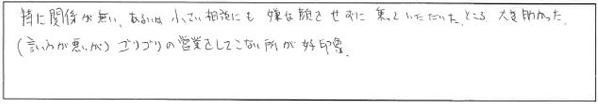 特に関係が無い、あるいは小さい相談にも嫌な顔させずに乗っていただいたところ大き助かった。
(言い方が悪いが)ゴリゴリの営業をしてこない所が好印象。